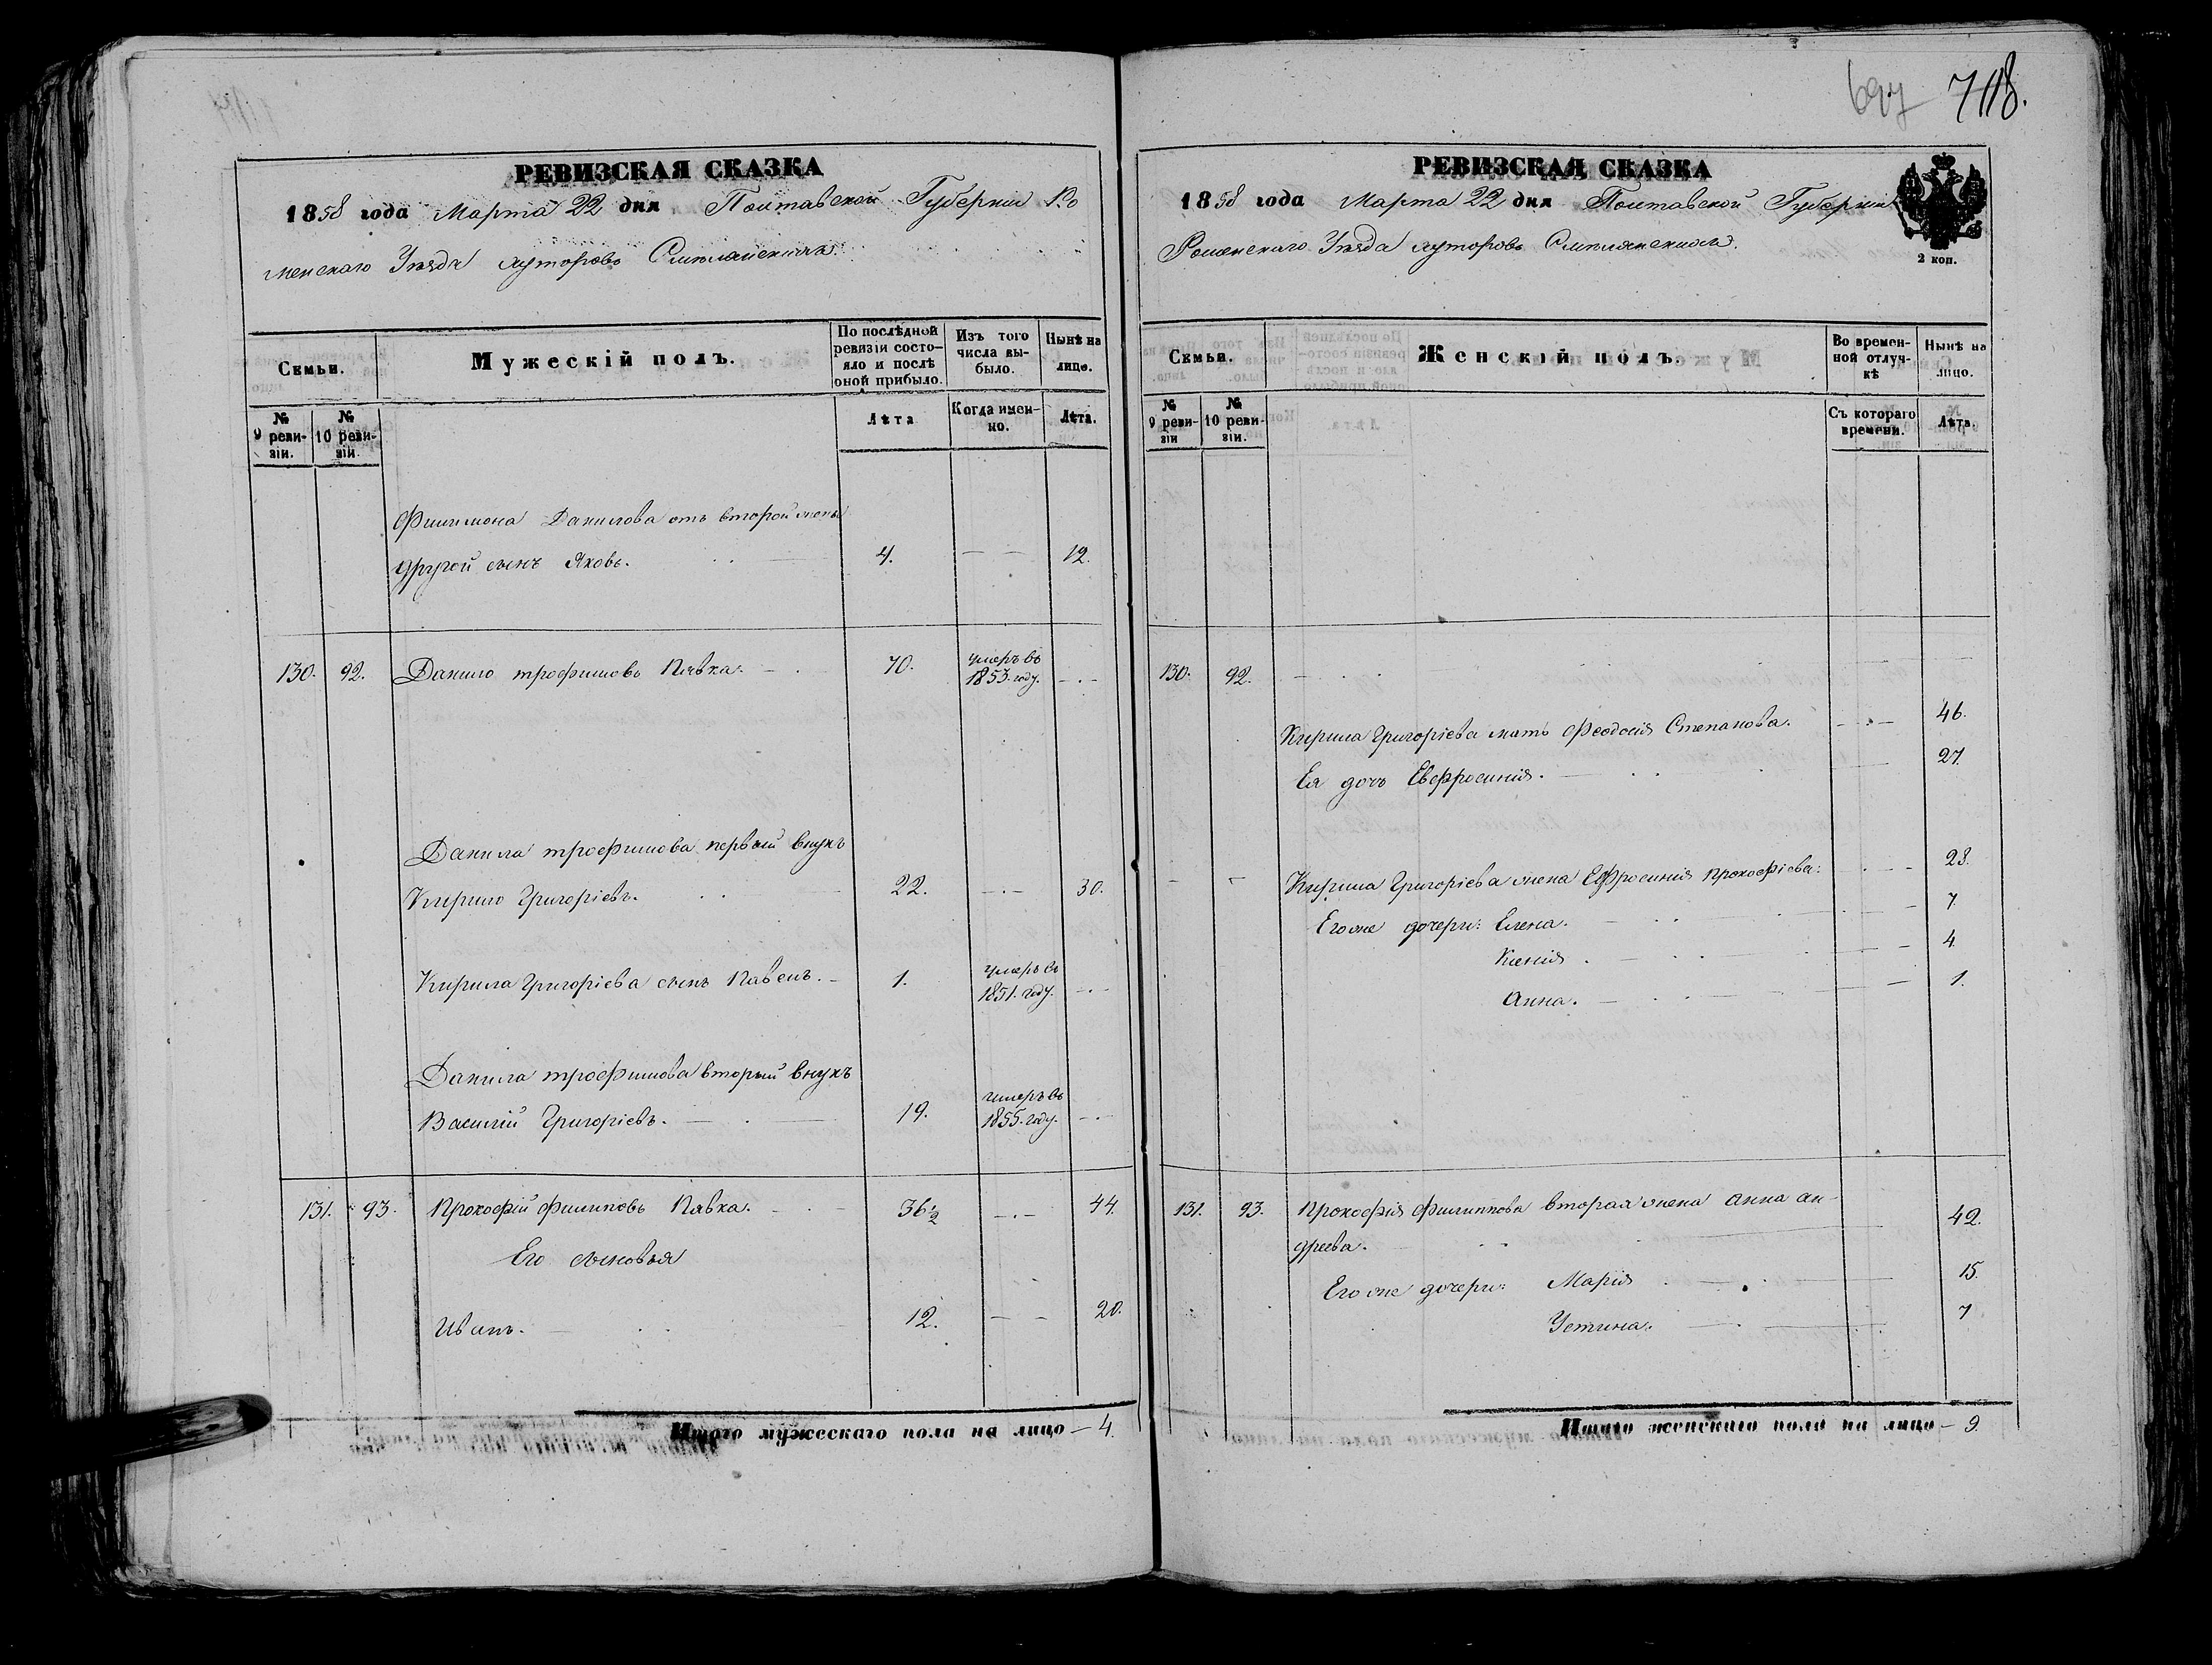 697 718.
РЕВИЗСКАЯ СКАЗКА
1858 года Марта 22 дня Полтавской Губернии Ро
менскаго Уезда хуторовъ Смелянскихъ.
Семьи.
Мужескій полъ.
По послѣдной ревизіи состояло и послѣ оной прибыло.
Изъ того числа выбыло.
Нынѣ на лицо.
№ 9 ревизіи.
№ 10 ревизіи.
Лѣта
Когда именно.
Лѣта.
Филимона Данилова отъ второй жены
другой сынъ Яковъ. 4. — — 12.
130. 92. Данило трофимовъ Пявка. 70. умеръ въ 1853. году. —.—
Данила трофимова первый внукъ
Кирило Григоріевъ. 22. —.— 30.
Кирила Григоріева сынъ Павелъ. 1. умеръ въ 1851. году. —.—
Данила трофимова вторый внукъ
Василій Григоріевъ. 19. умеръ въ 1855. году. —.—
131. 93. Прокофій филиповъ Пявка. 36½ —.— 44.
Его сыновья
Иванъ. 12. — — 20.
Итого мужескаго пола на лицо — 4.
РЕВИЗСКАЯ СКАЗКА
1858 года Марта 22 дня Полтавской Губернии
Роменскаго Уезда хуторовъ Смелянскихъ.
2 коп.
Семьи.
Женскій полъ.
Во временной отлучкѣ
Нынѣ на лицо.
№ 9 ревизіи
№ 10 ревизіи.
Съ котораго времени.
Лѣта.
130. 92.
Кирила Григоріева мать Феодосія Степанова. 46.
Ея дочь Евфросинія. 27.
Кирила Григоріева жена Ефросинія Прокофіева: 28.
Егоже дочери: Елена. 7.
Ксенія. 4.
Анна. 1.
131. 93. Прокофія Филиппова вторая жена Анна Ан-
дреева. 42.
Егоже дочери: Марія 15.
Устина. 7
Итого женскаго пола на лицо — 9.